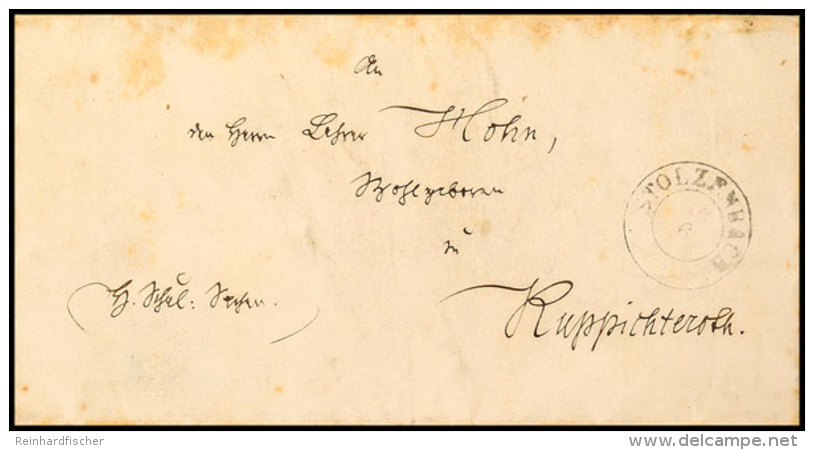 An
den Herrn Lehrer Mohn,
Wohlgeboren
zu
Ruppichteroth.
H. Schul: Sachen.
STOLZENBACH
Reinhardfischer
www.delcampe.net